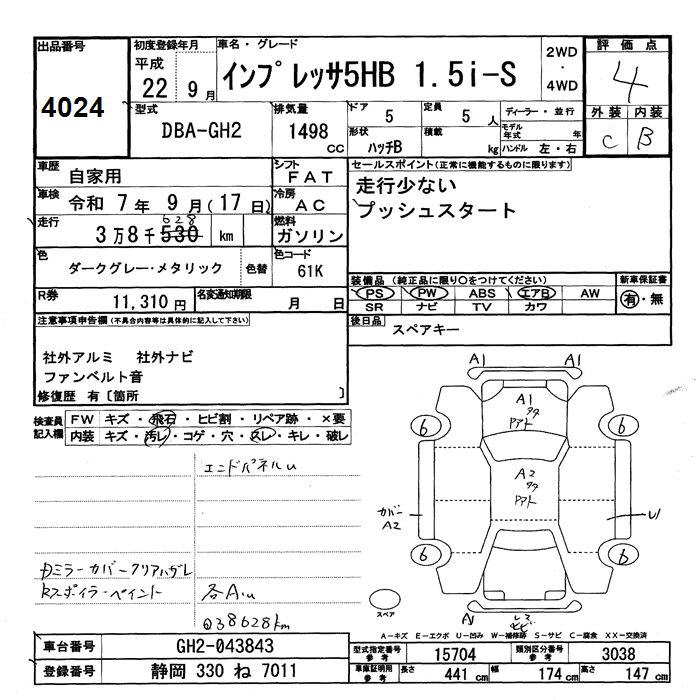 出品番号
4024
初度登録年月
平成
22 9月
車名・グレード
インプレッサ5HB 1.5i-S
2WD
・
4WD
評価点
4
外装 内装
C B
型式
DBA-GH2
排気量
1498
CC
ドア
5
定員
5 人
形状
ハッチB
積載
kg
ディーラー・並行
モデル年式 年
ハンドル 左・右
車歴
自家用
シフト
FAT
車検
令和 7年 9月(17日)
冷房
AC
走行
628
3万8千530 km
燃料
ガソリン
色
ダークグレー・メタリック
色替
色コード
61K
R券
11,310円
名変通知期限
月 日
セールスポイント(正常に機能するものに限ります)
走行少ない
プッシュスタート
装備品(純正品に限り○をつけてください)
PS PW ABS エアB AW
SR ナビ TV カワ
新車保証書
有・無
後日品
スペアキー
注意事項申告欄(不具合内容等は具体的に記入して下さい)
社外アルミ 社外ナビ
ファンベルト音
修復歴 有〔箇所 〕
検査員記入欄
FW キズ・飛石・ヒビ割・リペア跡・×要
内装 キズ・汚レ・コゲ・穴・スレ・キレ・破レ
エンドパネルu
ミラーカバークリアハガレ
スポイラーペイント
各A.u
38628km
A1 A1
A1
アト
6 6
A2
アト
カバー
A2
U1
6 6
スペア
A-キズ E-エクボ U-凹み W-補修跡 S-サビ C-腐食 XX-交換済
車台番号
GH2-043843
登録番号
静岡 330 ね 7011
型式指定番号
参考
15704
類別区分番号
参考
3038
車庫証明用
参考
長さ
441 cm
幅
174 cm
高さ
147 cm